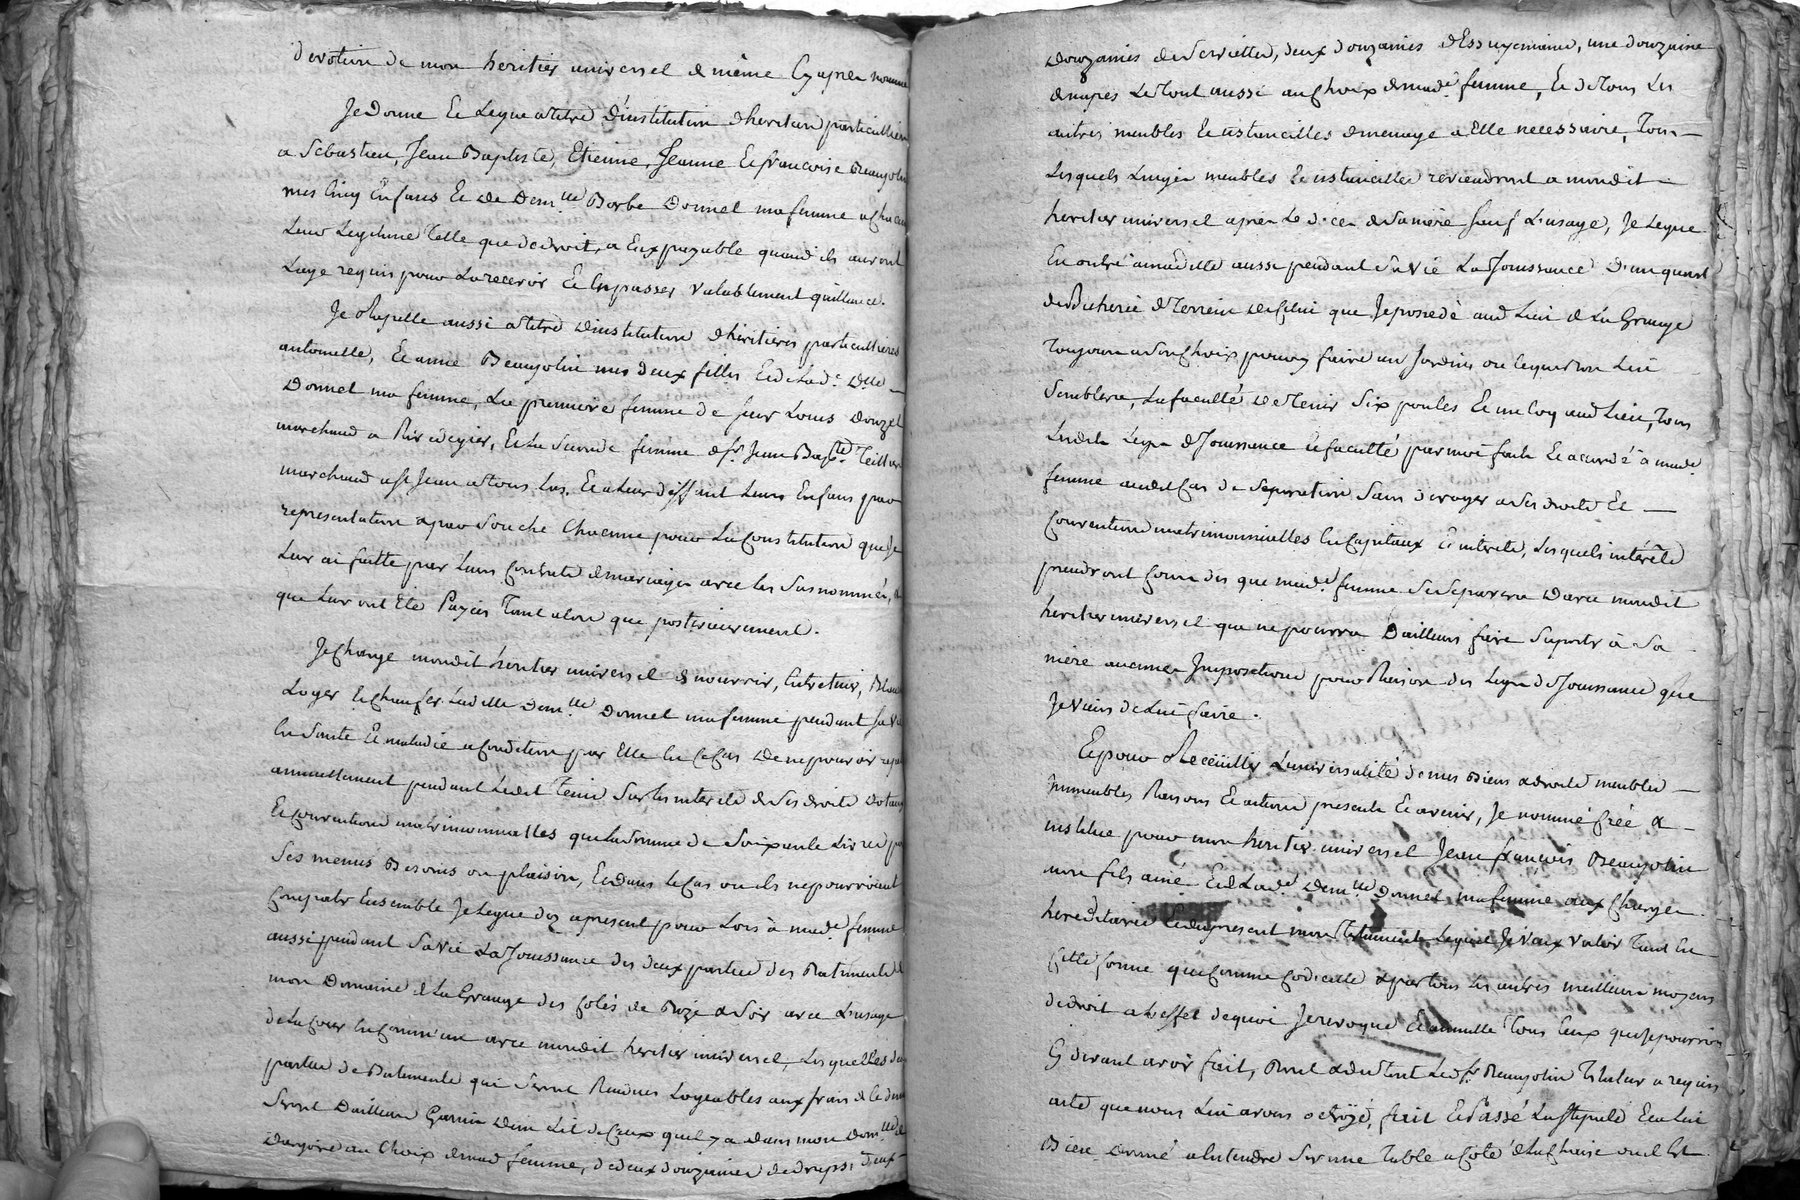 devotion de mon heritier universel & même Cy apres nommé
Je Donne Et Legue a titre d'institution d'heritiers particulliers
a Sebastien, Jean Baptiste, Etienne, Jeanne Et francoise Beaujolin
mes Cinq Enfans Et de Dem.lle Barbe Donnet ma femme a chacun
Leur Legitime Telle que de droit, a Eux payable quand ils auront
L'age requis pour La recevoir Et En passer valablement quittance.
Je Rapelle aussi a titre d'institution d'héritieres particullieres
antoinette, Et anne Beaujolin mes deux filles Et de Lad.e D.lle
Donnet ma femme, La premiere femme de sieur Louis Douzet
marchand a Rivedegier, Et La Seconde femme de S.r Jean Bap.te Teillard
marchand a S.t Jean a Tous Las, Et a Leur deffaut Leurs Enfans par
representation & par Souche Chacune pour La Constitution que Je
Leur ai faitte par Leurs Contrats de mariages avec Les Susnommés, &
que Leur ont Eté Payés Tant alors que posterieurement.
Je Charge mondit heritier universel de nourrir, Entretenir,
Loger Et Chaufer Ladite Dem.lle Donnet ma femme pendant Sa vie
En Santé Et maladie a Condition par Elle En Ce Cas de ne pouvoir
annuellement pendant Ledit Tems Sur Les interets de Ses droits Dotaux
Et Conventions matrimonialles que La Somme de Soixante Livres pour
Ses menus Besoins ou plaisirs, Et dans Le Cas ou ils ne pourroient
Compatir Ensemble Je Legue des a present pour Lors à mad.e femme
aussi pendant Sa vie La Jouissance des deux parties des Batiments de
mon Domaine de La Grange des Cotés de Bize & Soir avec L'usage
de La Cour En Commun avec mondit heritier universel, Lesquelles
parties de Batiments qui Seront Rendues Logeables aux frais de
Seront D'ailleurs Garnies D'un Lit de Ceux qu'il y a dans mon Dom.lle de
Dargoire au Choix de mad.e femme, de deux douzaines de draps, deux
douzaines de Serviettes, deux douzaines d'Essuymains, une douzaine
de napes Le Tout aussi au Choix de mad.e femme, Et de Tous Les
autres meubles Et ustancilles de menage a Elle necessaire, Tous
Lesquels Linges meubles Et ustancilles reviendront a mondit
heritier universel après Le deces de Sa mère Sauf L'usage, Je Legue
En outre a mad.e aussi pendant Sa vie La Jouissance D'un quart
de Bicherée de Terrein de Celui que Je possede aud. Lieu de La Grange
Toujours a Son Choix pour y faire un Jardin ou Ce que Bon Lui
Semblera, La faculté de Tenir Six poules Et un Coq aud. Lieu, Tous
Lesdits Legs de Jouissance Et faculté par moi faits Et acordés à mad.e
femme audit Cas de Separation Sans deroger a Ses droits Et
Conventions matrimonnielles En Capitaux Et interets, Lesquels intérêts
prendront Cours dès que mad.e femme Se Separera D'avec mondit
heritier universel qui ne pourra D'ailleurs faire Suporter à Sa
mère aucunes Impositions pour Raison des Legs de Jouissance que
Je Viens de Lui faire.
Et pour Receüillir L'universalité de mes Biens & droits meubles
Immeubles Raisons Et actions presents Et avenir, Je nomme Créé &
institue pour mon heritier universel Jean françois Beaujolin
mon fils ainé Et de Lad.e Dem.lle Donnet ma femme aux Charges
hereditaires Et du present mon Testament Lequel Je Veux valoir Tant En
Cette forme que Comme Codicille & par Tous Les autres meilleurs moyens
de droit a L'effet de quoi Je revoque Et annulle Tous Ceux que Je pourrois
Cy devant avoir fait, Dont & du Tout Led. S.r Beaujolin Testateur a requis
acte que nous Lui avons octroyé, fait Et Passé Lu Stipulé Et a Lui
Bien Donné a Entendre Sur une Table a Coté de La Chaise ou il Est